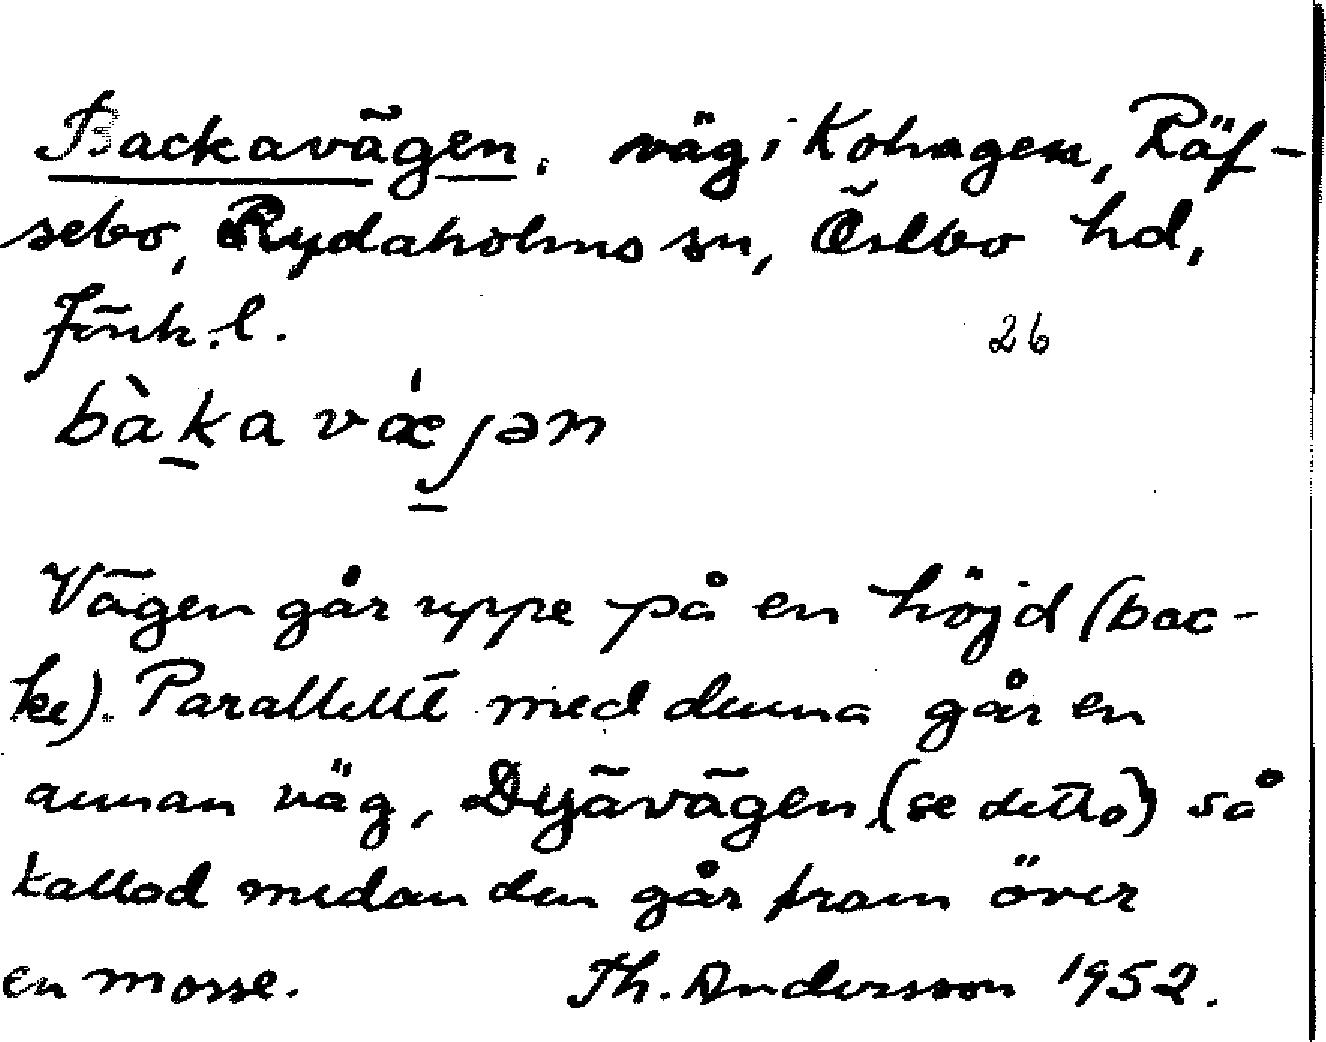 Backavägen. väg i Kohagen, Räf-
sebo, Rydaholms sn, Östbo hd,
Jönk. l.
26
bàkavǽjən
Vägen går uppe på en höjd (bac-
ke). Parallellt med denna går en
annan väg, Dyävägen (se detto) så
kallad medan den går fram över
en mosse. Th. Andersson 1952.